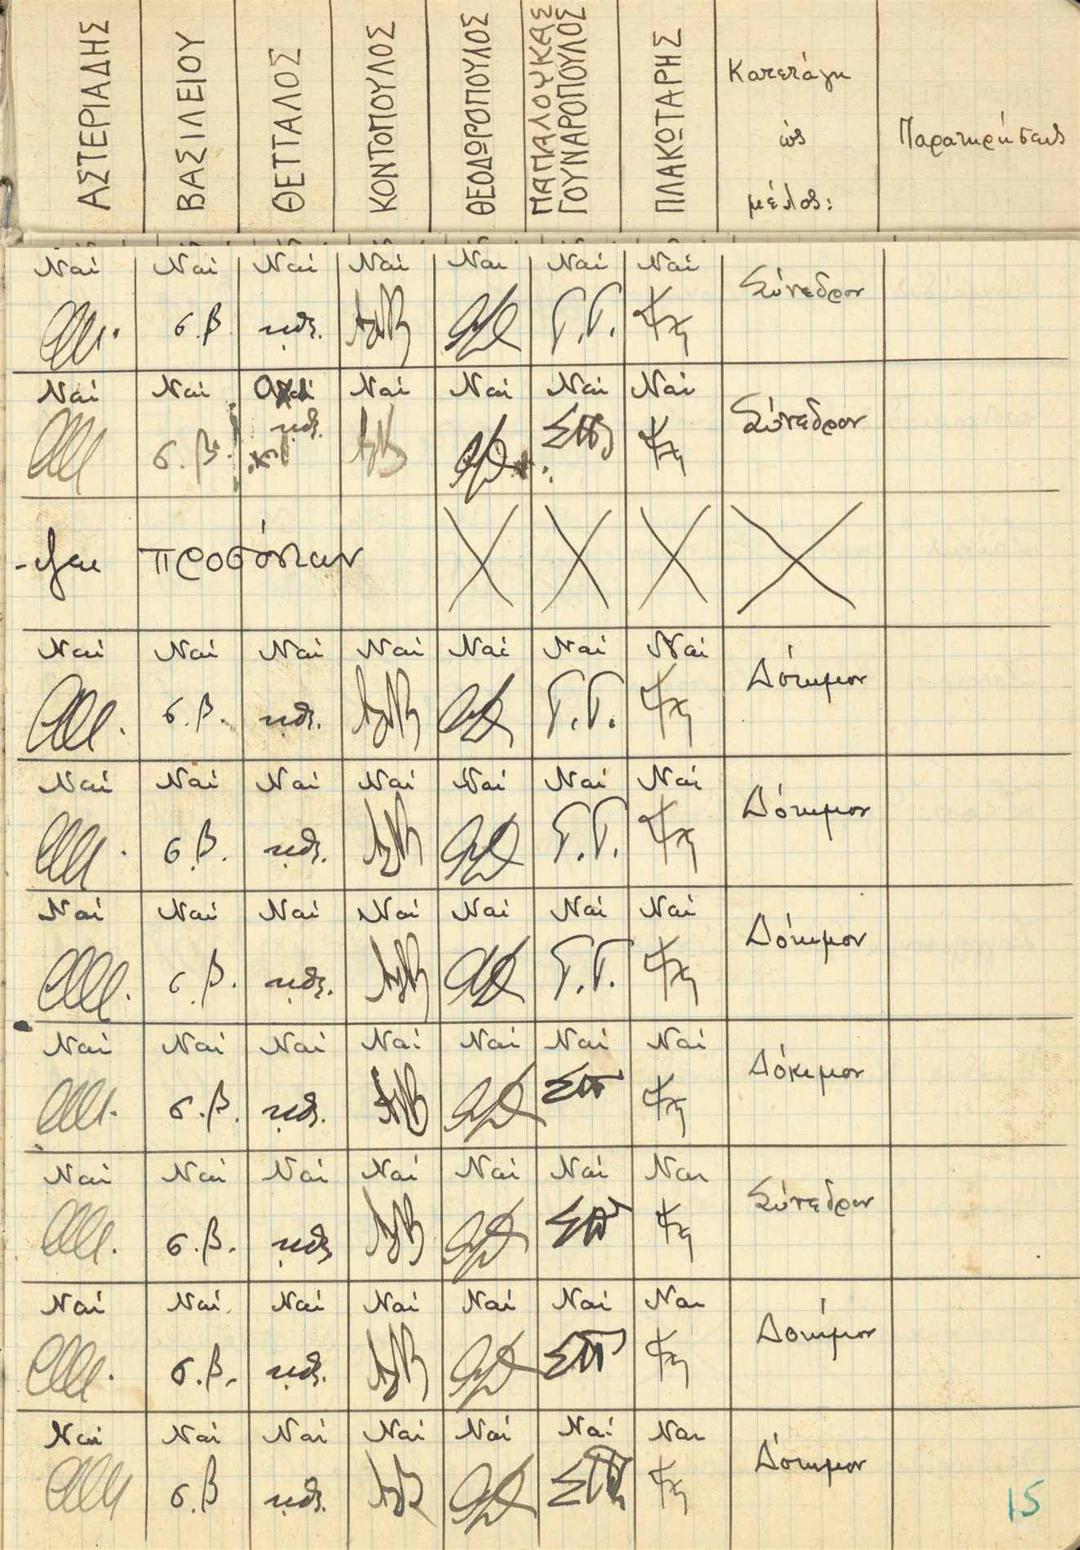 ΑΣΤΕΡΙΑΔΗΣ ΒΑΣΙΛΕΙΟΥ ΘΕΤΤΑΛΟΣ ΚΟΝΤΟΠΟΥΛΟΣ ΘΕΟΔΩΡΟΠΟΥΛΟΣ ΠΑΠΑΛΟΥΚΑΣ ΓΟΥΝΑΡΟΠΟΥΛΟΣ ΠΛΑΚΩΤΑΡΗΣ Κατετάγη ὡς μέλος: Παρατηρήσεις
Ναί Ναί Ναί Ναί Ναι Ναί Ναί Σύνεδρον
σ.β Γ.Γ.
Ναί Ναί Ναί Ναί Ναί Ναί Σύνεδρον
σ.β.
προσόντων
Ναί Ναί Ναί Ναί Ναί Ναί Ναί Δόκιμον
σ.β. Γ.Γ.
Ναί Ναί Ναί Ναί Ναί Ναί Ναί Δόκιμον
σ.β. Γ.Γ.
Ναί Ναί Ναί Ναί Ναί Ναί Ναί Δόκιμον
σ.β. Γ.Γ.
Ναί Ναί Ναί Ναί Ναί Ναί Ναί Δόκιμον
σ.β.
Ναί Ναί Ναί Ναί Ναί Ναί Ναι Σύνεδρον
σ.β.
Ναί Ναί Ναί Ναί Ναί Ναί Ναι Δόκιμον
σ.β.
Ναί Ναί Ναί Ναί Ναί Ναί Ναι Δόκιμον
σ.β
15